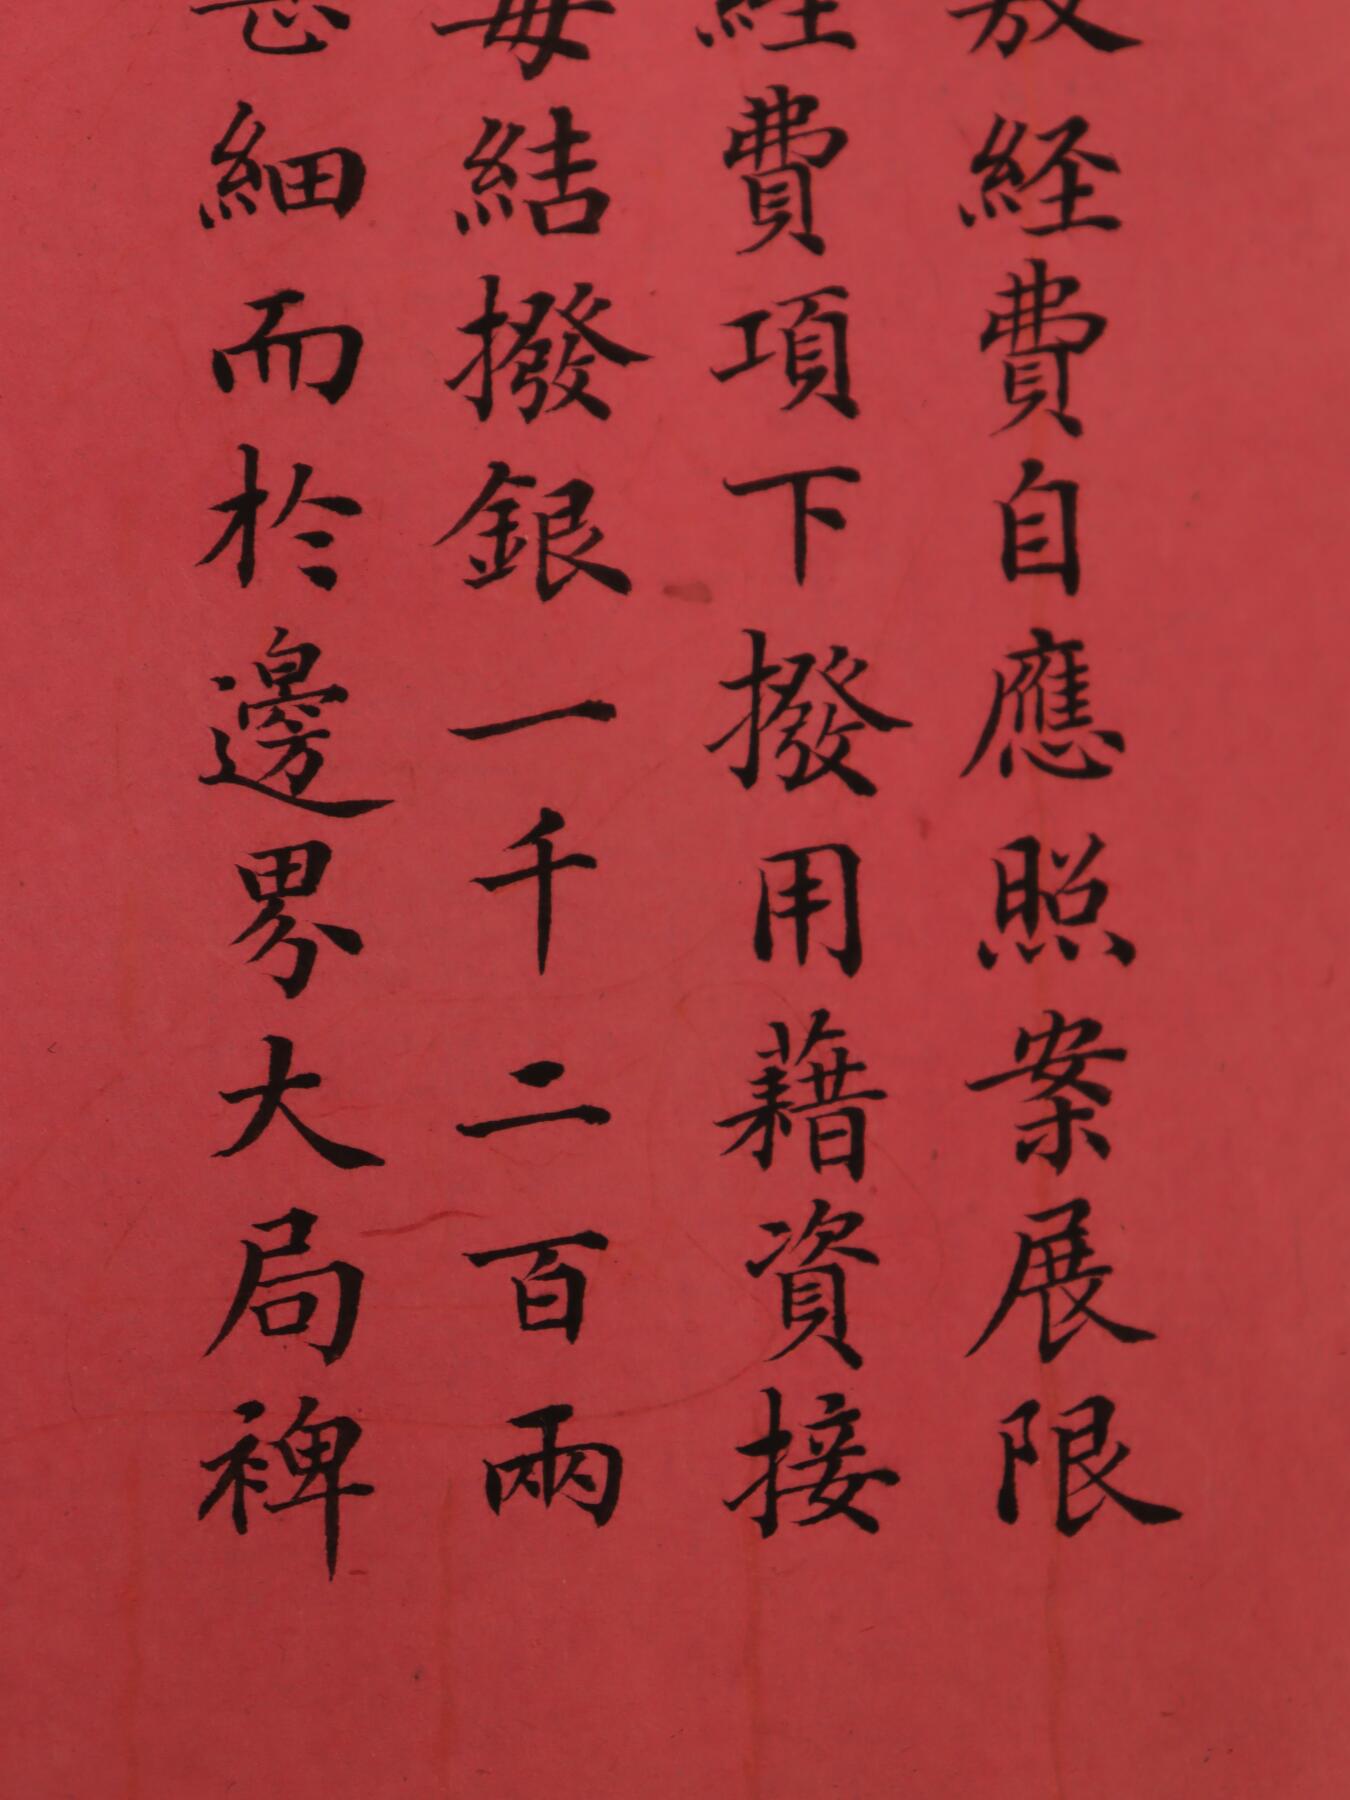 経費自應照案展限
経費項下撥用藉資接
毎結撥銀一千二百兩
細而於邊界大局裨